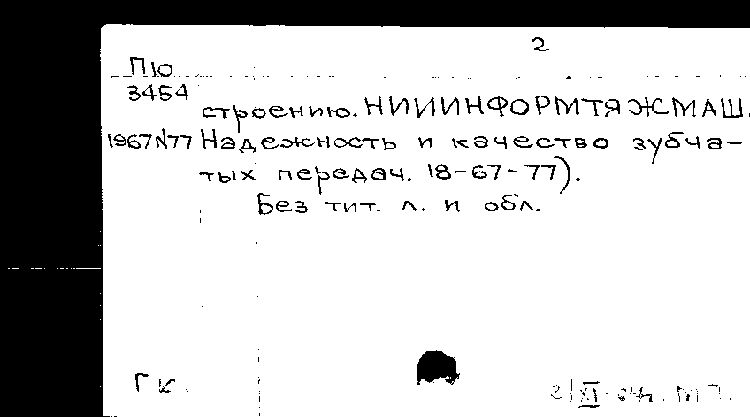 2
Пю
3454
строению. НИИИНФОРМТЯЖМАШ.
1967 N77 Надежность и качество зубча-
тых передач. 18-67-77).
Без тит. л. и обл.
Гк.